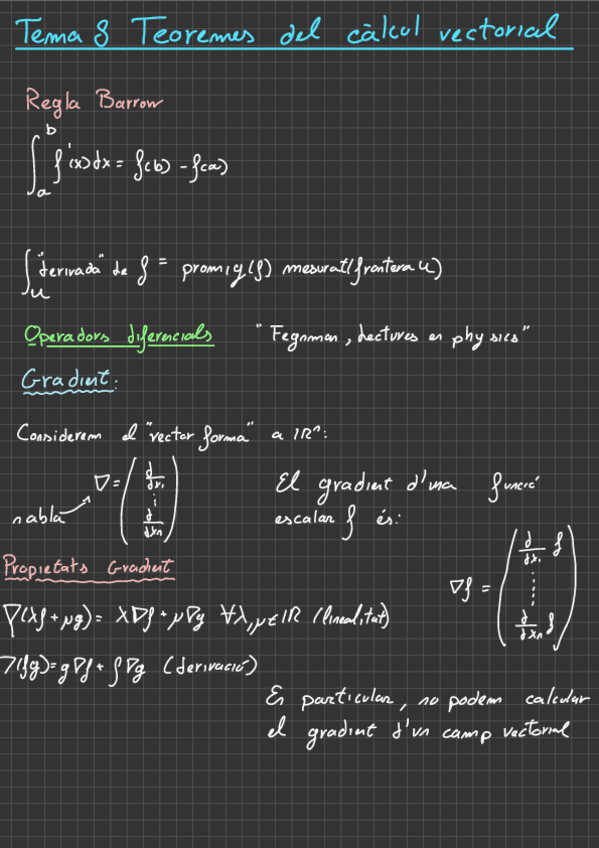 Tema 8 Teoremes del càlcul vectorial
Regla Barrow
∫_a^b f'(x)dx = f(b) - f(a)
∫_U "derivada" de f = promig(f) mesurat(frontera U)
Operadors diferencials "Feynman, Lectures on physics"
Gradient:
Considerem el "vector forma" a ℝⁿ:
∇ = (d/dx₁ ⋮ d/dxₙ)
nabla
El gradient d'una funció
escalar f és:
∇f = (d/dx₁ f ⋮ d/dxₙ f)
Propietats Gradient
∇(λf + μg) = λ∇f + μ∇g ∀λ,μ∈ℝ (linealitat)
∇(fg) = g∇f + f∇g (derivació)
En particular, no podem calcular
el gradient d'un camp vectorial